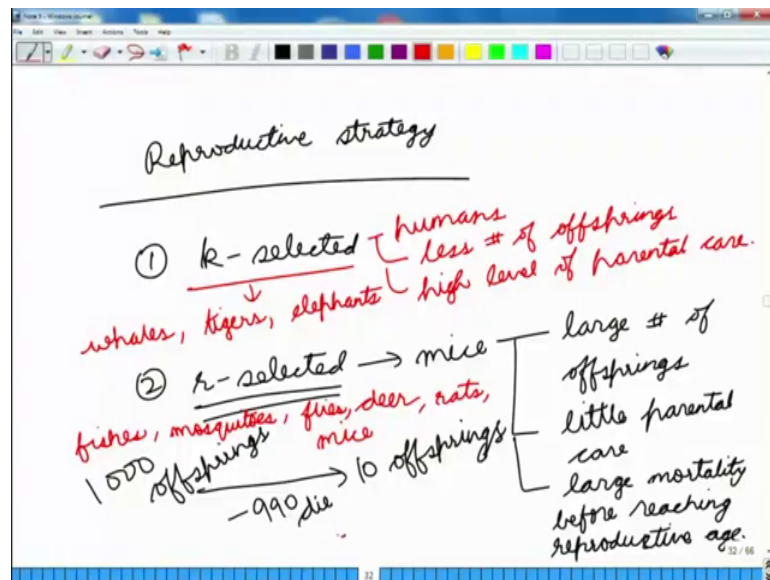 Note 9 - Windows Journal
File Edit View Insert Actions Tools Help
B
Reproductive strategy
① k-selected
humans
less # of offsprings
high level of parental care.
whales, tigers, elephants
② r-selected → mice
large # of
offsprings
little parental
care
large mortality
before reaching
reproductive age.
fishes, mosquitoes, flies, deer, rats,
mice
1000 offsprings → 10 offsprings
-990 die
32/66
32